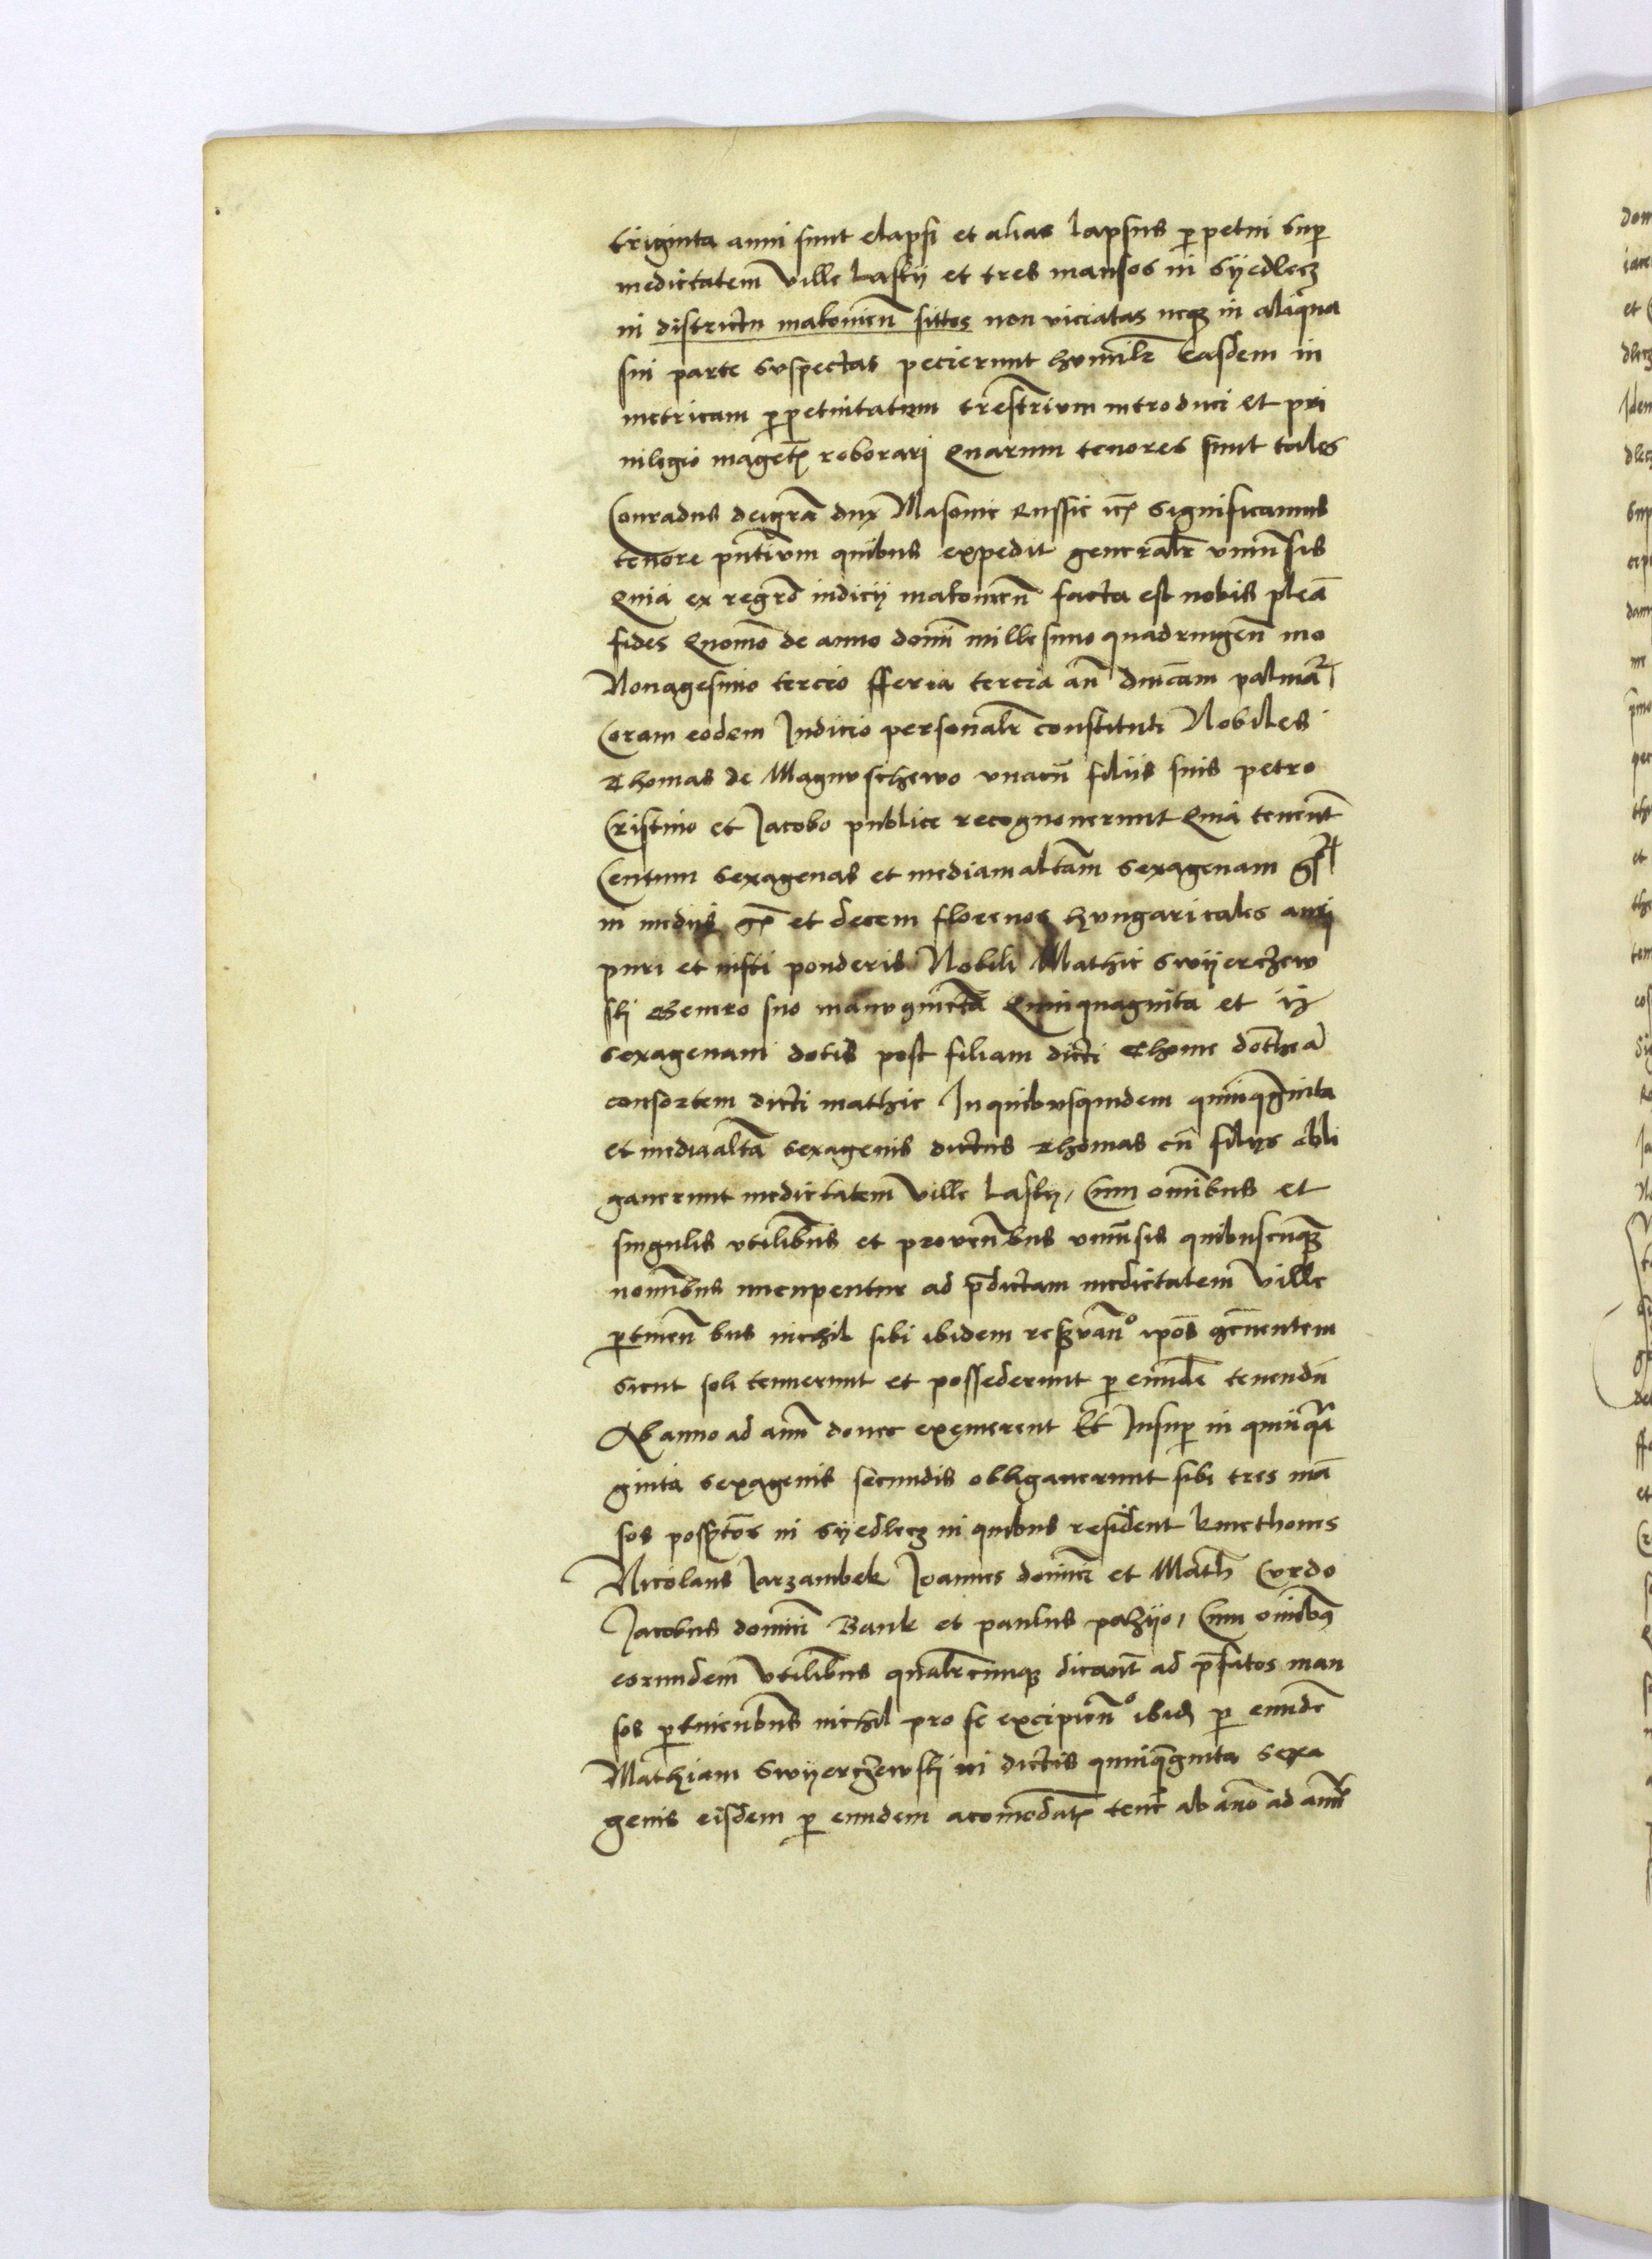 triginta anni sunt elapsi et alias lapsus perpetui super
medietatem ville Lasky et tres mansos in Syedlecz
in districtu makovien sittos non viciatas neque in aliqua
sui parte suspectas pecierunt humilr Easdem in
metricam perpetuitatum trestrium introduci et pri
vilegio roborari Quarum tenores sunt tales
Conradus dei gra dux Masovie Russie etc Significamus
tenore pntium quibus expedit generalr univsis
Quia ex regro iudicii makovien facta est nobis plea
fides Quomo de anno domi millesimo quadringen mo
Nonagesimo tercio fferia tercia an dnicam palmar
Coram eodem Iudicio personalr constituti Nobiles
Thomas de Magnuschewo unacu filiis suis petro
Cristino et Jacobo publice recognoverunt Quia tenent
Centum sexagenas et mediam altam sexagenam gr
in mediis gr et decem florenos hungaricales auri
puri et iusti ponderis Nobili Mathie Swyerczew
ski Genero suo Quinquaginta et
sexagenam dotis post filiam dicti Thome dothea
consortem dicti mathie In quibusquidem quinqginta
et media alta sexagenis dictus Thomas cu filiis obli
gaverunt medietatem ville Lasky, Cum omibus et
singulis utilibus et provenbus univsis quibuscunque
nomibus nucupentur ad pdictam medietatem ville
ptinen bus nichil sibi ibidem reservano ipos
sicut soli tenuerunt et possederunt per eunde tenendu
Ab anno ad ann donec exemerent Et Insuper in quinqua
ginta sexagenis secundis obligaverunt sibi tres man
sos possitos in Syedlecz in quibus resident kmethones
Nicolaus Jarzambek Joannes domini et Math Curdo
Jacobus domini Bank et paulus Cum omibus
eorundem utilibus qualrcunque dicant ad pfatos man
sos ptinenbus nichil pro se excipien ibid per eunde
Mathiam Swyerczewski in dictis quinqginta sexa
genis eisdem per eundem acomodat ten ab ano ad ann